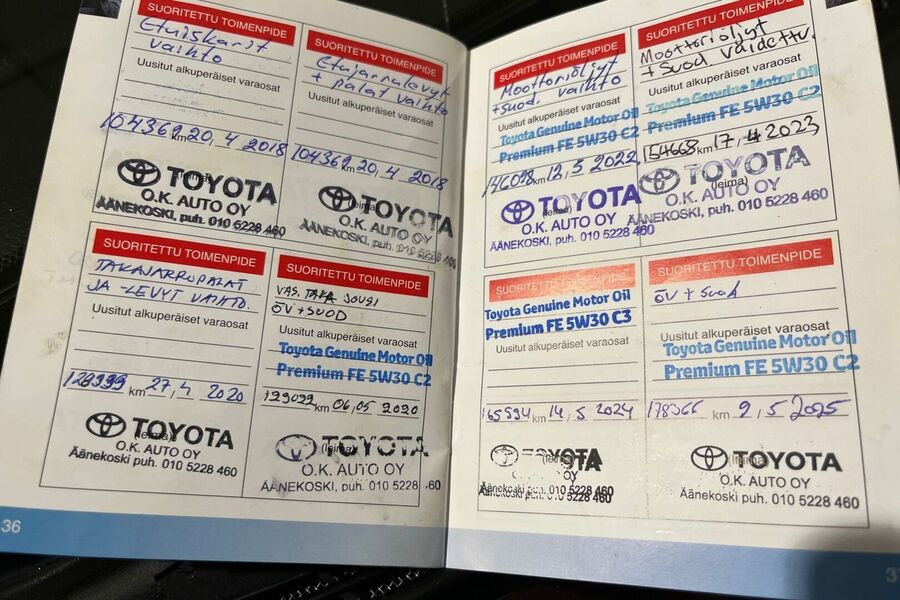 SUORITETTU TOIMENPIDE
Etuiskarit
vaihto
Uusitut alkuperäiset varaosat
104369 km 20,4 2018
TOYOTA
O.K. AUTO OY
ÄÄNEKOSKI, puh. 010 5228 460
SUORITETTU TOIMENPIDE
Etujarrulevyt
+ palat vaihto
Uusitut alkuperäiset varaosat
104369 km 20,4 2018
(leima)
TOYOTA
O.K. AUTO OY
ÄÄNEKOSKI, puh. 010 5228 460
SUORITETTU TOIMENPIDE
TAKAJARRUPALAT
JA -LEVYT VAIHTO.
Uusitut alkuperäiset varaosat
128999 km 27,4 2020
TOYOTA
O.K. AUTO OY
Äänekoski puh. 010 5228 460
SUORITETTU TOIMENPIDE
VAS. TAKA JOUSI
ÖV+SUOD
Uusitut alkuperäiset varaosat
Toyota Genuine Motor Oil
Premium FE 5W30 C2
129029 km 06,05 2020
(leima)
TOYOTA
O.K. AUTO OY
ÄÄNEKOSKI, puh. 010 5228 460
36
SUORITETTU TOIMENPIDE
Moottoriöljyt
+suod. vaihto
Uusitut alkuperäiset varaosat
Toyota Genuine Motor Oil
Premium FE 5W30 C2
146098 km 12,5 2022
(leima)
TOYOTA
O.K. AUTO OY
ÄÄNEKOSKI, puh. 010 5228 460
SUORITETTU TOIMENPIDE
Moottoriöljyt
+ suod vaidettu.
Uusitut alkuperäiset varaosat
Toyota Genuine Motor Oil
Premium FE 5W30 C2
154668 km 17,4 2023
(leima)
TOYOTA
O.K. AUTO OY
ÄÄNEKOSKI, puh. 010 5228 460
SUORITETTU TOIMENPIDE
Toyota Genuine Motor Oil
Premium FE 5W30 C3
Uusitut alkuperäiset varaosat
165594 km 14,5 2024
(leima)
TOYOTA
O.K. AUTO OY
Äänekoski puh. 010 5228 460
SUORITETTU TOIMENPIDE
ÖV + suod
Uusitut alkuperäiset varaosat
Toyota Genuine Motor Oil
Premium FE 5W30 C2
178366 km 2,5 2025
(leima)
TOYOTA
O.K. AUTO OY
Äänekoski puh. 010 5228 460